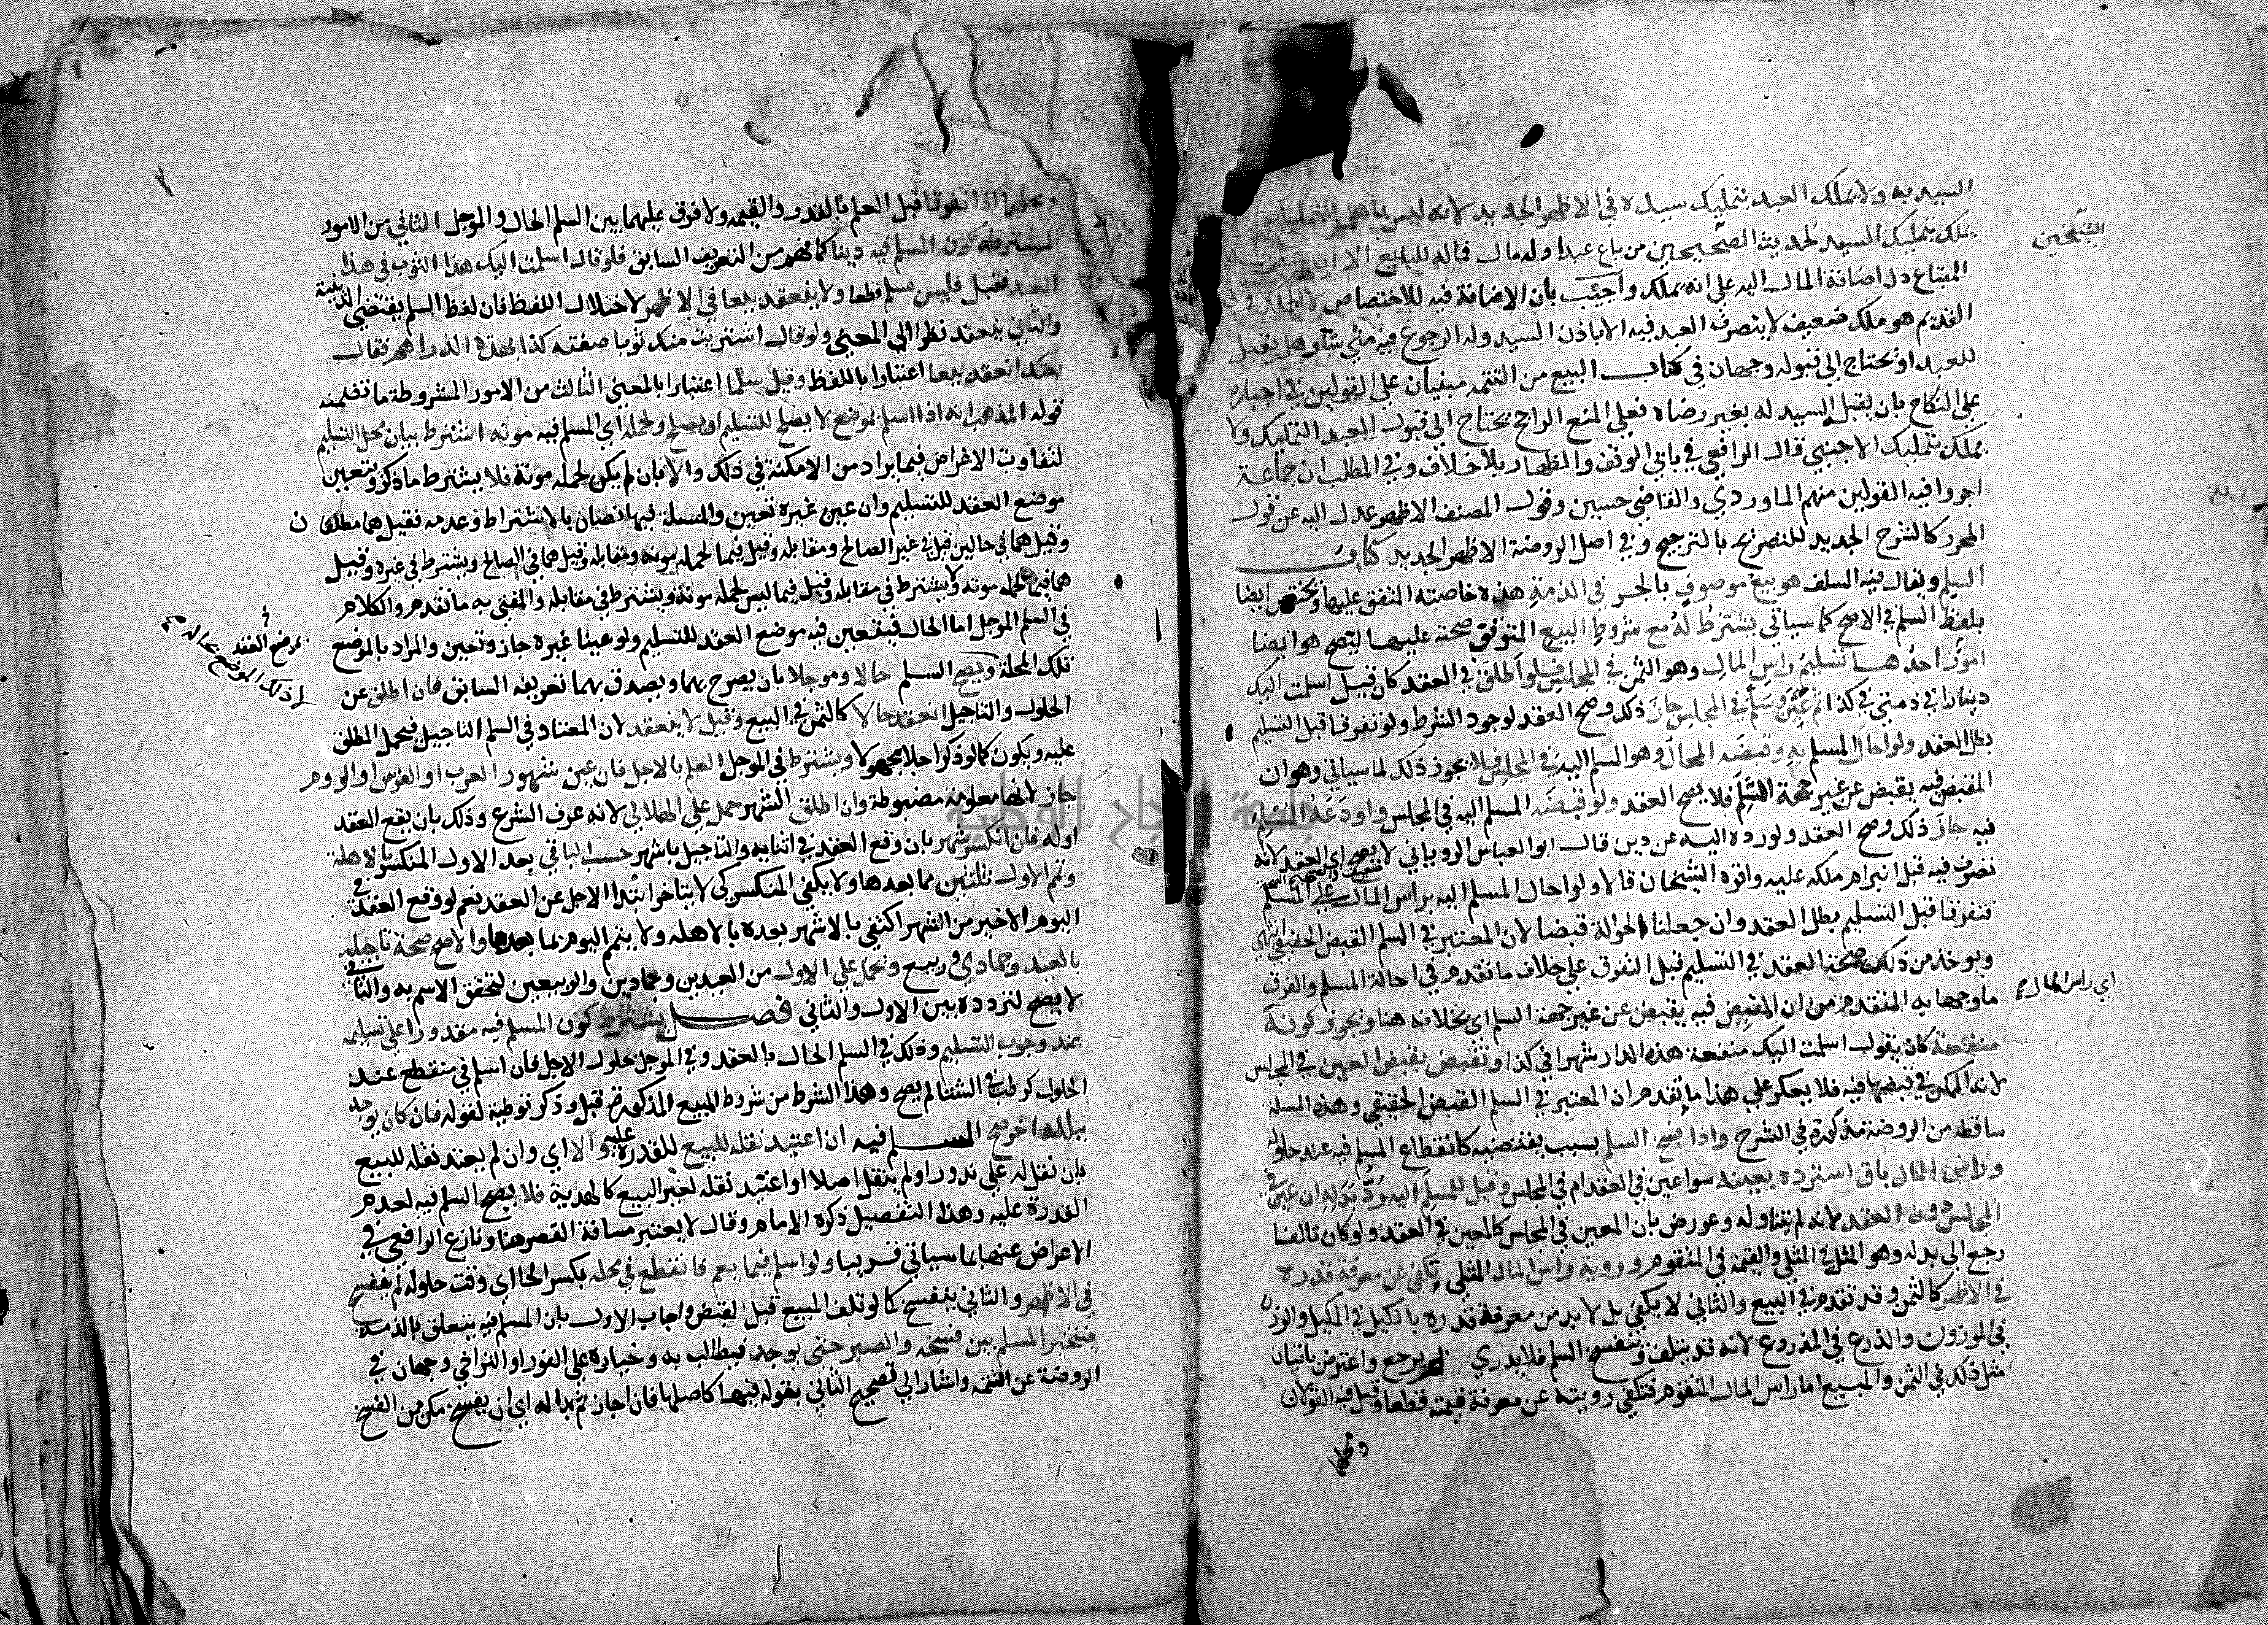 السيد به ولا يملك العبد بتمليك سيده في الاظهر الجديد لانه ليس باهل للتمليك
يملك بتمليك السيد لحديث الصحيحين من باع عبدا وله مال فماله للبايع الا ان يشترطه
المبتاع دل اضافة المال اليه على انه يملك واجيب بان الاضافة فيه للاختصاص لا للملك وعلى
القديم هو ملك ضعيف لا يتصرف العبد فيه الا باذن السيد وله الرجوع فيه متى شا وهل يقبل
للعبد او يحتاج الى قبوله وجهان في كتاب البيع من التتمه مبنيان على القولين في اجباره
على النكاح بان يقبل السيد له بغير رضاه فعلى المنع الراجح يحتاج الى قبول العبد التمليك ولا
يملك بتمليك الاجنبي قال الرافعي في بابي الوقف والظهار بلا خلاف وفي المطلب ان جماعة
اجروا فيه القولين منهم الماوردي والقاضي حسين وقول المصنف الاظهر عدل اليه عن قول
المحرر كالشرح الجديد للتصريح بالترجيح وفي اصل الروضة الاظهر الجديد كتاب
السلم ويقال فيه السلف هو بيع موصوف بالجر في الذمة هذه خاصته المتفق عليها ويختص ايضا
بلفظ السلم في الاصح كما سياتي يشترط له مع شروط البيع المتوقف صحته عليها ليصح هو ايضا
امور احدها تسليم راس المال وهو الثمن في المجلس فلو اطلق في العقد كان قيل اسلمت اليك
دينارا في ذمتي في كذا ثم عين وسلم في المجلس جاز ذلك وصح العقد لوجود الشرط ولو تفرقا قبل التسليم
بطل العقد ولو احال المسلم به وقبضه المحال وهو المسلم اليه في المجلس فلا يجوز ذلك لما سياتي وهو ان
المقبض فيه يقبض عن غير جهة السلم فلا يصح العقد ولو قبضه المسلم اليه في المجلس واودعه المسلم
فيه جاز ذلك وصح العقد ولو رده اليه عن دين قال ابو العباس الروياني لا يصح اي العقد لانه
تصرف فيه قبل انبرام ملكه عليه واقره الشيخان قالا ولو احال المسلم اليه براس المال على المسلم
فتفرقا قبل التسليم بطل العقد وان جعلنا الحوالة قبضا لان المعتبر في السلم القبض الحقيقي انتهى
ويوخذ من ذلك صحة العقد في التسليم قبل التفرق على خلاف ما تقدم في احالة المسلم والفرق
ما وجهاه به المتقدم من ان المقبض فيه يقبض عن غير جهة السلم اي بخلافه هنا ويجوز كونه
منفعة كان يقول اسلمت اليك منفعة هذه الدار شهرا في كذا وتقبض بقبض العين في المجلس
لانه الممكن في قبضها فيه فلا يعكر على هذا ما تقدم ان المعتبر في السلم القبض الحقيقي وهذه المسلة
ساقطه من الروضة مذكورة في الشرح واذا فسخ السلم بسبب يقتضيه كانقطاع المسلم فيه عند حلوله
وراس المال باق استرده بعينه سوا عين في العقد ام في المجلس وقيل للمسلم اليه رد بدله ان عين في
المجلس دون العقد لانه لم يتناوله وعورض بان المعين في المجلس كالمعين في العقد ولو كان تالفا
رجع الى بدله وهو المثل في المثلي والقيمة في المتقوم وروية راس المال المثلي تكفي عن معرفة قدره
في الاظهر كالثمن وقد تقدم في البيع والثاني لا يكفي بل لا بد من معرفة قدره بالكيل في المكيل والوزن
في الموزون والذرع في المذروع لانه قد يتلف وينفسخ السلم فلا يدري بم يرجع واعترض باتيان
مثل ذلك في الثمن والمبيع اما راس المال المتقوم فتكفي رويته عن معرفة قيمته قطعا وقيل فيه القولان
ومحلهما
الشيخين
اي راس المال
ومحلهما اذا تفرقا قبل العلم بالقدر والقيمه ولا فرق عليهما بين السلم الحال والموجل الثاني من الامور
المشترطه كون المسلم فيه دينا كما فهم من التعريف السابق فلو قال اسلمت اليك هذا الثوب في هذا
العبد فقبل فليس بسلم قطعا ولا ينعقد بيعا في الاظهر لاختلال اللفظ فان لفظ السلم يقتضي الدينية
والثاني ينعقد نظرا الى المعنى ولو قال اشتريت منك ثوبا صفته كذا بهذه الدراهم فقال
بعتك انعقد بيعا اعتبارا باللفظ وقيل سلما اعتبارا بالمعنى الثالث من الامور المشروطة ما تضمنه
قوله المذهب انه اذا اسلم بموضع لا يصلح للتسليم او يصلح ولحمله اي المسلم فيه مونه اشترط بيان محل التسليم
لتفاوت الاغراض فيما يراد من الامكنة في ذلك والا بان لم يكن لحمله مونة فلا يشترط ما ذكر ويتعين
موضع العقد للتسليم وان عين غيره تعين والمسلة فيها نصان بالاشتراط وعدمه فقيل هما مطلقان
وقيل هما في حالين قيل في غير الصالح ومقابله وقيل فيما لحمله مونه ومقابله وقيل هما في الصالح ويشترط في غيره وقيل
هما فيما لحمله مونه ولا يشترط في مقابله وقيل فيما ليس لحمله مونة ويشترط في مقابله والمفتى به ما تقدم والكلام
في السلم الموجل اما الحال فيتعين فيه موضع العقد للتسليم ولو عينا غيره جاز وتعين والمراد بالموضع
تلك المحلة ويصح السلم حالا وموجلا بان يصرح بهما ويصدق بهما تعريفه السابق فان اطلق عن
الحلول والتاجيل انعقد حالا كالثمن في البيع وقيل لا ينعقد لان المعتاد في السلم التاجيل فيحمل المطلق
عليه ويكون كما لو ذكرا اجلا مجهولا ويشترط في الموجل العلم بالاجل فان عين شهور العرب او الفرس او الروم
جاز لانها معلومة مضبوطة وان اطلق الشهر حمل على الهلالي لانه عرف الشرع وذلك بان يقع العقد
اوله فان انكسر شهر بان وقع العقد في اثنايه والتاجيل باشهر حسب الباقي بعد الاول المنكسر بالاهلة
وتمم الاول ثلثين مما بعدها ولا يكفي المنكسر كي لا يتاخر ابتدا الاجل عن العقد نعم لو وقع العقد في
اليوم الاخير من الشهر اكتفي بالاشهر بعده بالاهله ولا يتمم اليوم مما بعدها والاصح صحة تاجيله
بالعيد وجمادى وربيع ويحمل على الاول من العيدين وجمادين والربيعين لتحقق الاسم به والثاني
لا يصح لتردده بين الاول والثاني فصل يشترط كون المسلم فيه مقدورا على تسليمه
عند وجوب التسليم وذلك في السلم الحال بالعقد وفي الموجل بحلول الاجل فان اسلم في منقطع عند
الحلول كرطب في الشتا لم يصح وهذا الشرط من شروط البيع المذكورة قبل وذكر توطية لقوله فان كان يوجد
ببلد اخر صح المسلم فيه ان اعتيد نقله للبيع للقدرة عليه والا اي وان لم يعتد نقله للبيع
بان نقل له على ندور او لم ينقل اصلا او اعتيد نقله لغير البيع كالهدية فلا يصح السلم فيه لعدم
القدرة عليه وهذا التفصيل ذكره الامام وقال لا يعتبر مسافة القصر هنا ونازع الرافعي في
الاعراض عنها بما سياتي قريبا ولو اسلم فيما يعم فانقطع في محله بكسر الحا اي وقت حلوله لم ينفسخ
في الاظهر والثاني ينفسخ كما لو تلف المبيع قبل القبض واجاب الاول بان المسلم فيه يتعلق بالذمة
فيتخير المسلم بين فسخه والصبر حتى يوجد فيطالب به وخياره على الفور او التراخي وجهان في
الروضة عن التتمه واشار الى تصحيح الثاني بقوله فيها كاصلها فان اجاز ثم بدا له اي ان يفسخ مكن من الفسخ
موضع العقد